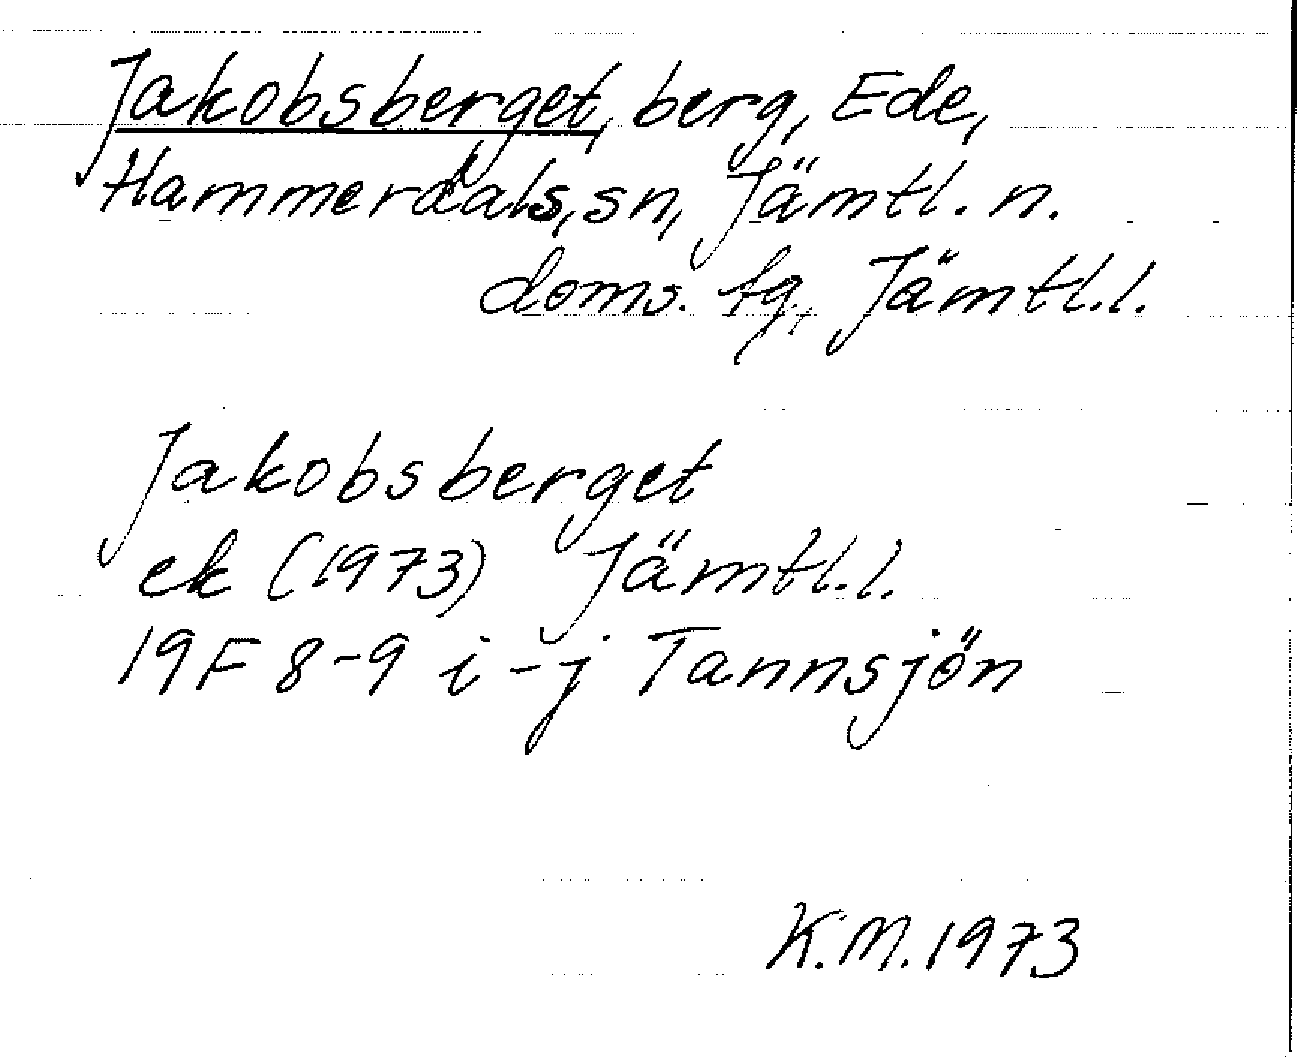 Jakobsberget, berg, Ede,
Hammerdals, sn, Jämtl. n.
doms. tg, Jämtl.l.
Jakobsberget
ek (1973) Jämtl.l.
19F 8-9 i-j Tannsjön
K.M. 1973